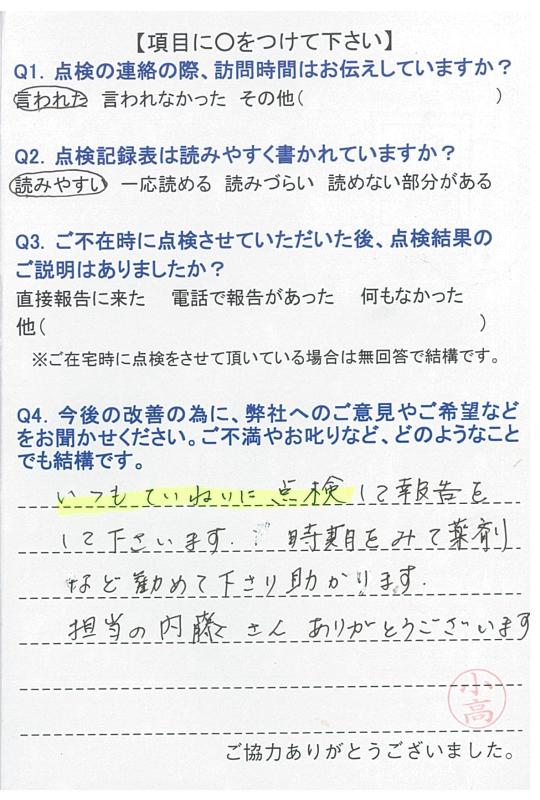 【項目に〇をつけて下さい】
Q1. 点検の連絡の際、訪問時間はお伝えしていますか？
言われた 言われなかった その他( )
Q2. 点検記録表は読みやすく書かれていますか？
読みやすい 一応読める 読みづらい 読めない部分がある
Q3. ご不在時に点検させていただいた後、点検結果の
ご説明はありましたか？
直接報告に来た 電話で報告があった 何もなかった
他( )
※ご在宅時に点検をさせて頂いている場合は無回答で結構です。
Q4. 今後の改善の為に、弊社へのご意見やご希望など
をお聞かせください。ご不満やお叱りなど、どのようなこと
でも結構です。
いつもていねいに点検して報告を
して下さいます. 時期をみて薬剤
など勧めて下さり助かります.
担当の内藤さん ありがとうございます
小高
ご協力ありがとうございました。